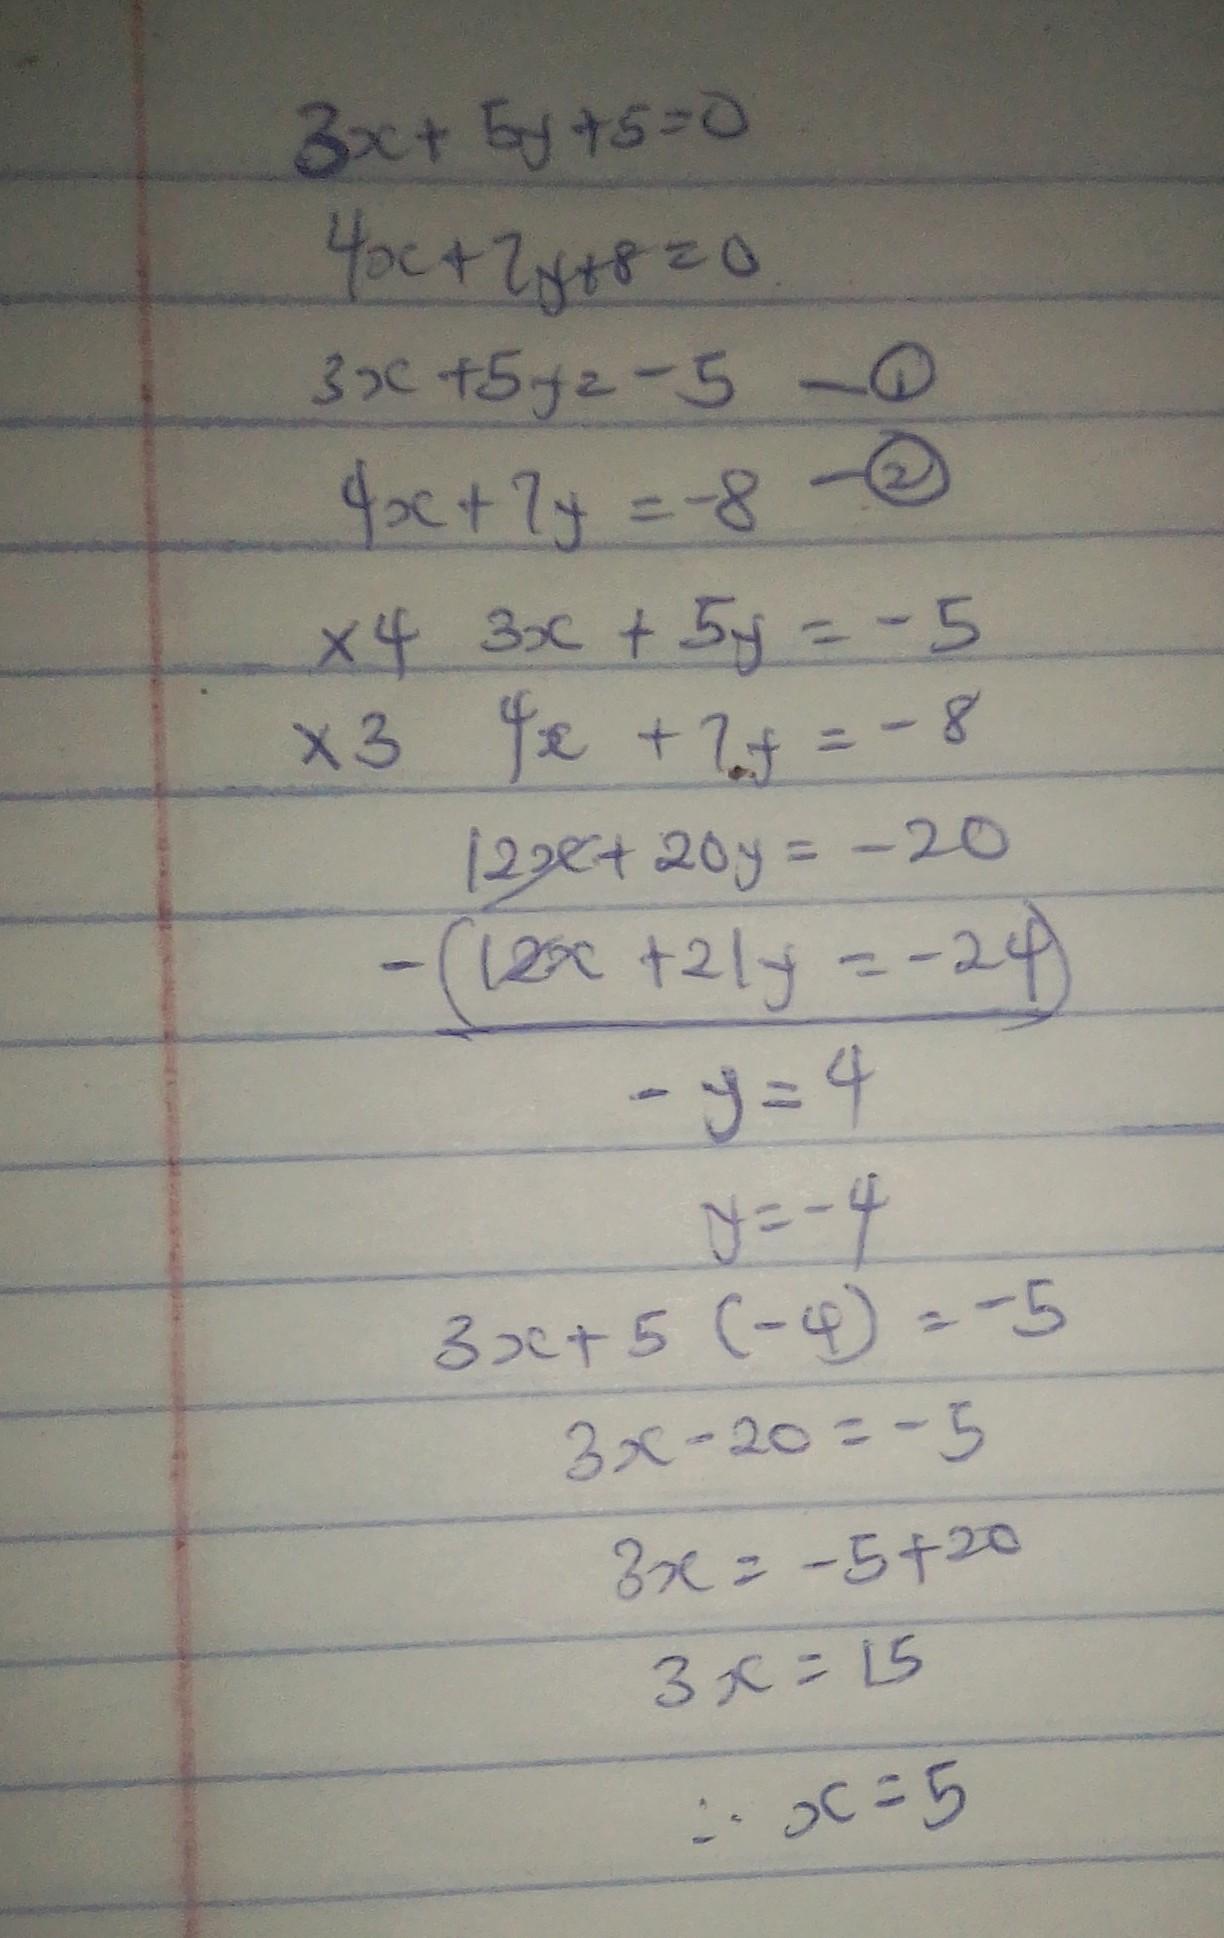 3x + 5y + 5 = 0
4x + 7y + 8 = 0
3x + 5y = -5 — ①
4x + 7y = -8 — ②
×4 3x + 5y = -5
×3 4x + 7y = -8
12x + 20y = -20
-(12x + 21y = -24)
- y = 4
y = -4
3x + 5 (-4) = -5
3x - 20 = -5
3x = -5 + 20
3x = 15
∴ x = 5